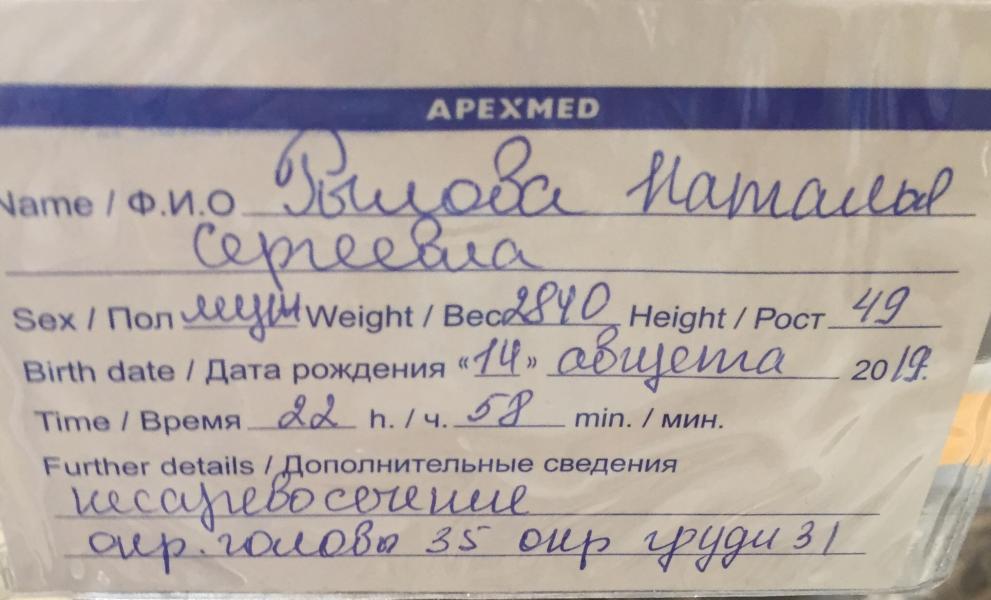 APEXMED
Name / Ф.И.О Рылова Наталья
Сергеевна
Sex / Пол муж Weight / Вес 2840 Height / Рост 49
Birth date / Дата рождения «14» августа 2019.
Time / Время 22 h. / ч. 58 min. / мин.
Further details / Дополнительные сведения
кесарево сечение
окр. головы 35 окр груди 31